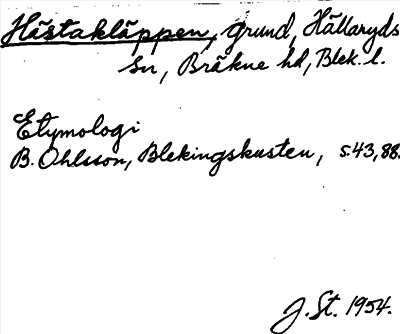 Hästakläppen, grund, Hällaryds
sn, Bräkne hd, Blek. l.
Etymologi
B. Ohlsson, Blekingskusten, s. 43, 88.
J. St. 1954.